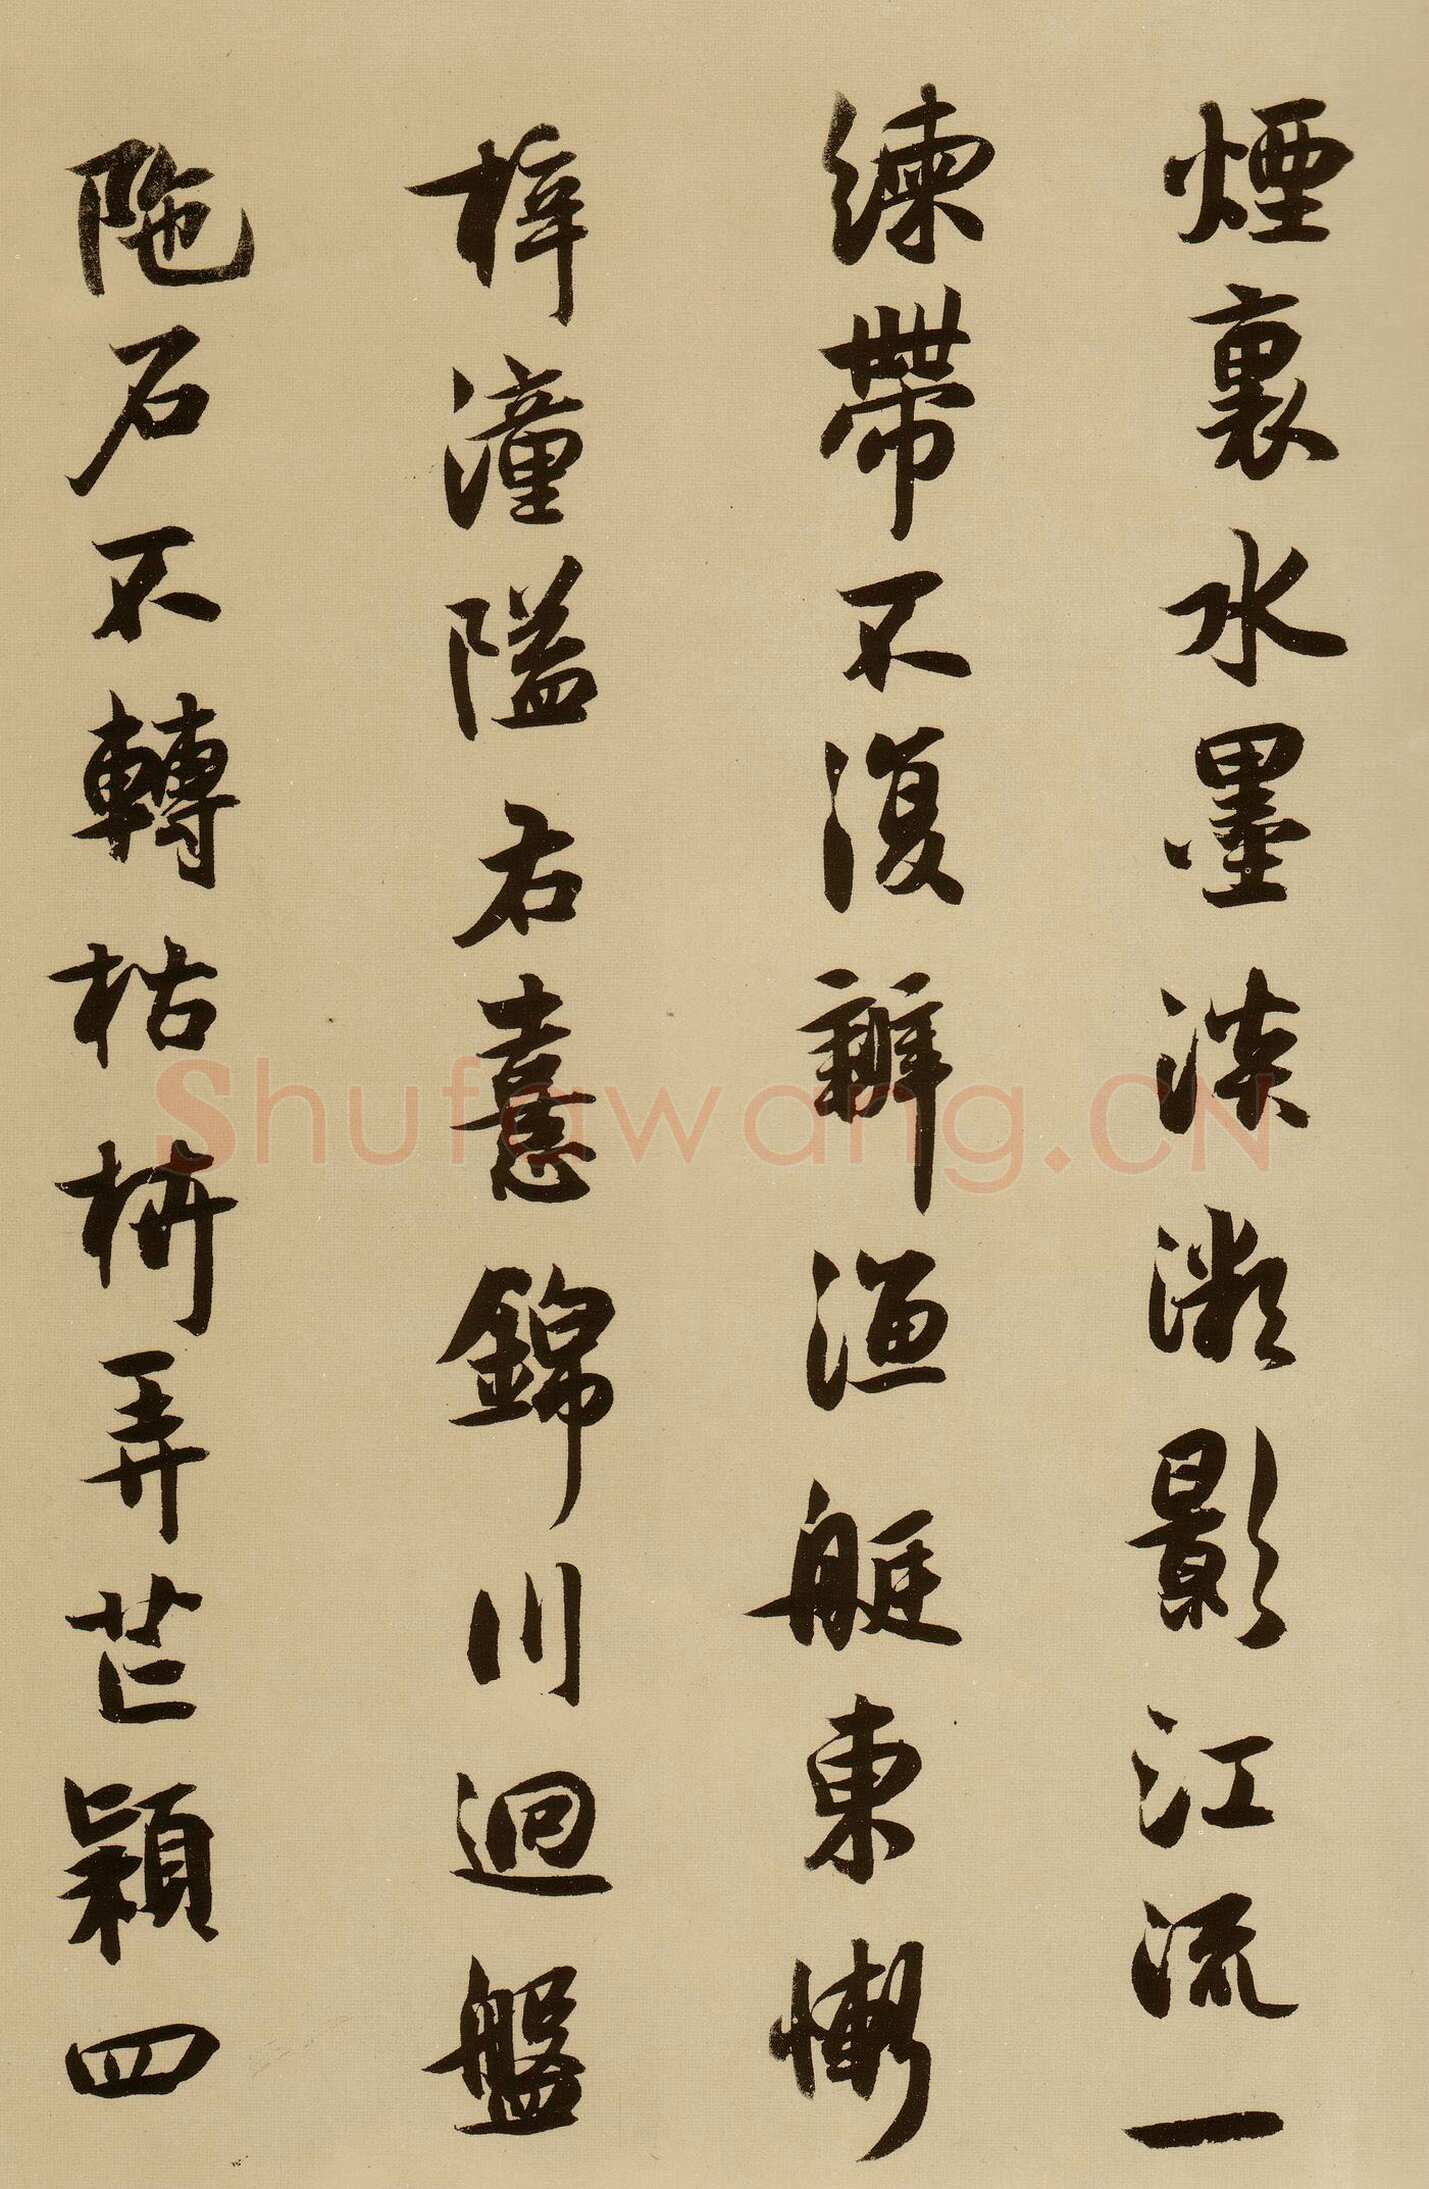 煙裏水墨淡凝影江流一
練帶不復辨漁艇東慚
梓潼隘右憙錦川迴盤
陁石不轉枯枿弄芒穎四
Shufawang.CN